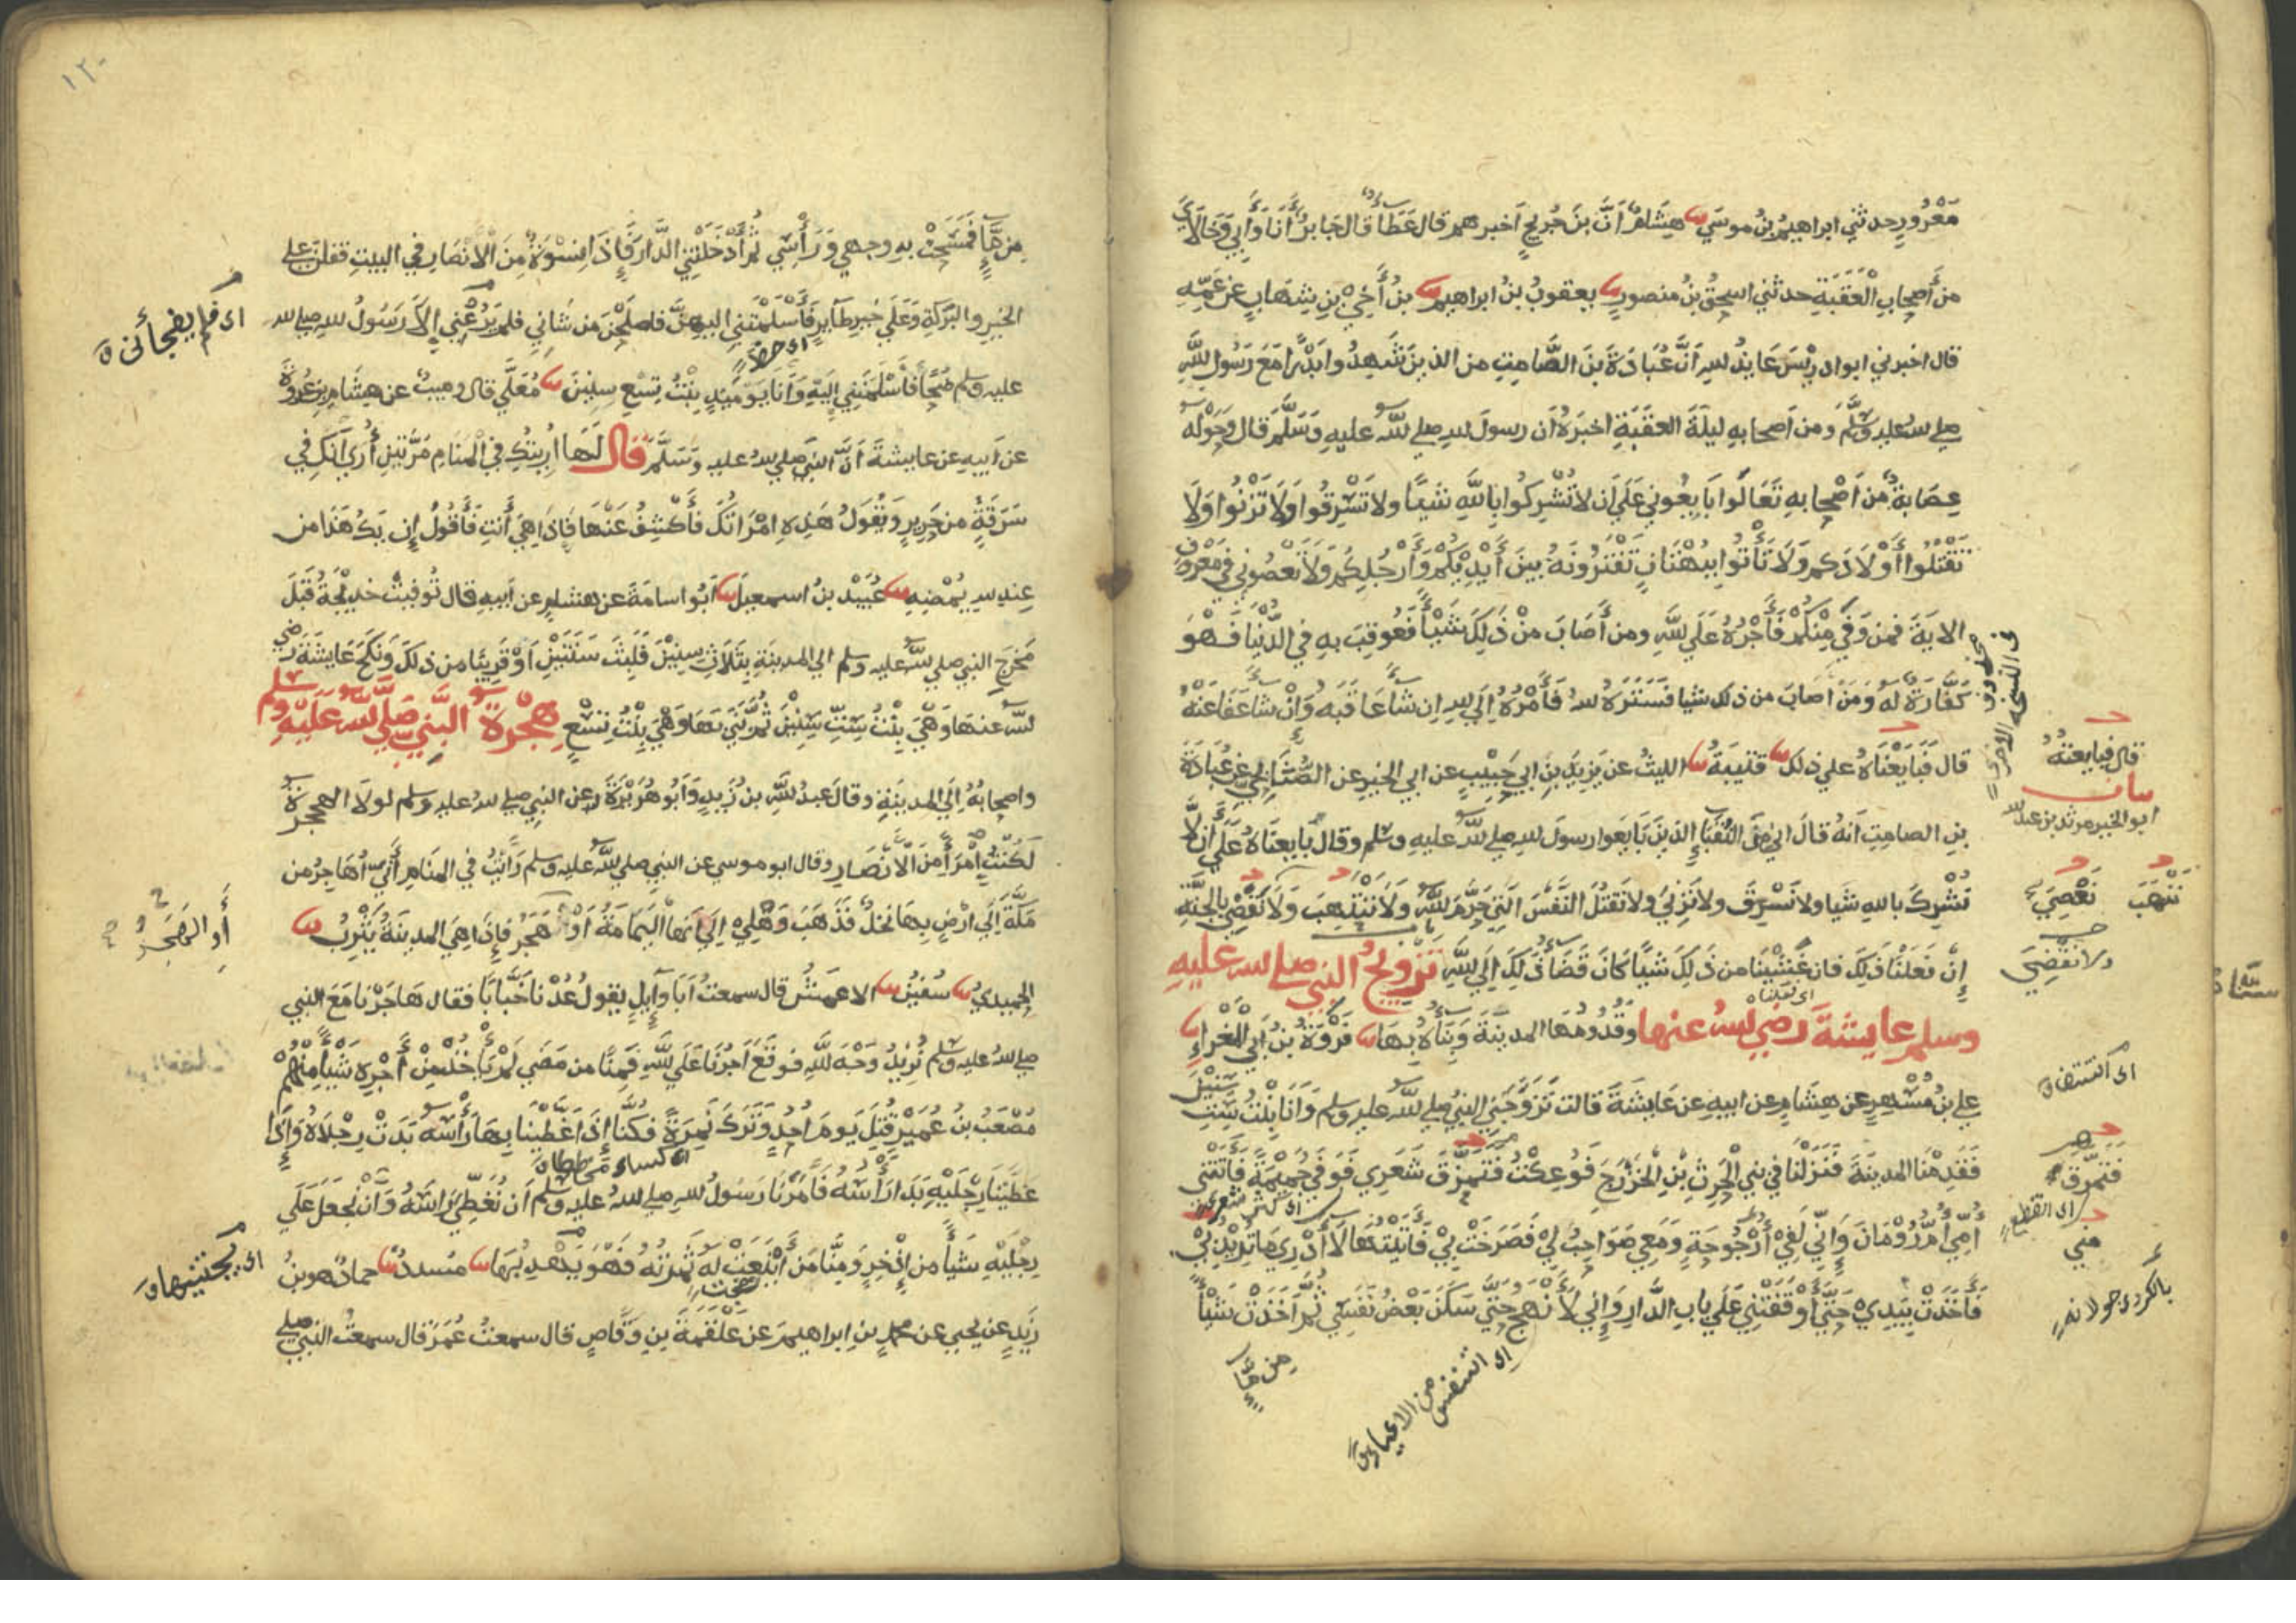 مَعْرُورٍ حدثني ابراهيمُ بنُ موسَي نا هِشَامٌ اَنَّ بنَ جُريجٍ اَخبرهم قال عَطَاءٌ قال جَابرٌ أَنَا وَأَبي وَخَالَايَ
من أَصحابِ الْعَقَبَةِ حدثني اسحقُ بنُ منصورٍ نا يعقوبُ بنُ ابراهيم نا بنُ أَخِيْ بنِ شِهَابٍ عن عَمِّهِ
قال اخبرني ابو ادريْسَ عَايذُ لله اَنَّ عُبَادَةَ بنَ الصَّامِتِ من الذينَ شَهِدُوا بَدْرًا مَعَ رَسُولِ اللَّهِ
صلي لله عليه وسَلَّمَ ومن اَصحابهِ ليلَةَ العقَبَةِ اخبَرَهُ اَن رسولَ لله صلي للَّه عليهِ وَسَلَّمَ قال وَحَوْلَه
عِصَابَةٌ من اَصْحابهِ تَعَالَوا بَايِعُوني عَلَي اَن لا تُشْرِكُوا بِاللَّهِ شَيْئًا ولا تَسْرِقُوا وَلَا تَزْنُوا وَلَا
تَقْتُلُوا أَوْلَادَكم وَلَا تَأْتُوا بِبُهْتَانٍ تَفْتَرُونَهُ بينَ أَيْدِيْكُمْ وَأَرْجُلِكُم وَلَا تَعْصُوني في مَعْرُوفٍ
الاية فمن وَفَي مِنْكُمْ فَأَجْرُهُ عَلَي للَّهِ ومن أَصَابَ منْ ذَلِكَ شَيْأً فَعُوقِبَ بهِ في الدُّنْيَا فَهُوَ
كَفَّارَةٌ لَه وَمَنْ اَصَابَ من ذلك شيا فسَتَرَهُ للهُ فَأَمْرُهُ اِلَي للهِ اِن شَأَ عَاقَبَهُ وَاِنْ شَأَ عَفَا عَنْهُ
قال فَبَايَعْنَاهُ علي ذلك نا قتيبَةُ نا الليثُ عن يزيدَ بنِ ابي حَبِيْبٍ عن ابي الخيرِ عن الصُّنَابِحِيِّ عن عُبَادَةَ
بنِ الصامِتِ اَنهُ قالَ اِني مِنَ النُّقَبَاءِ الذينَ بَايَعوا رسولَ لله صلي للَّه عليهِ وسلم وقال بايعنَاهُ عَلَي أَن لَّا
نُشْركَ باللهِ شيا ولا نَسْرِقَ ولا نَزْنيَ ولا نَقْتُلَ النَّفْسَ الَّتي حَرَّمَ للَّه وَلَا نَنْتَهِبَ وَلَا نَقْضِي بالجنَّةِ
إِنْ فَعَلْنَا ذَلِكَ فان غَشِيْنَا من ذَلِكَ شيأً كانَ قَضَاءُ ذَلِكَ اِلَي للَّهِ تَزْوِيجُ النبي صلي لله عليهِ
وسلم عايشةَ رضي للهُ عنها وقُدُومُهَا المدينَةَ وَبِنَأُهُ بِهَا نا فَرْوَةُ بنُ أَبِي الْمَغْرَاءِ نا
علي بنُ مُسْهِرٍ عن هِشَامٍ عن ابيهِ عن عَايشَةَ قالت تَزَوَّجَني النبيُ صلي للَّه عليهِ وسلم وَاَنَا بِنْتُ سِتِّ سِنِيْنَ
فَقَدِمْنَا المدينَةَ فَنَزَلْنَا في بني الْحَرِثِ بْنِ الْخَزْرَجِ فَوُعِكْتُ فَتَمَزَّقَ شَعَرِي فَوَفَي جُمَيْمَةً فَأَتَتْنِي
أُمِّي أُمُّ رُوْمَانَ وَإِنّي لَفِيْ أُرْجُوحَةٍ وَمَعِي صَوَاحِبُ لِيْ فَصَرَخَتْ بِيْ فَأَتَيْتُهَا لَا أَدْرِي مَا تُرِيْدُ بِيْ
فَأَخَذَتْ بِيَدِي حَتَّي أَوْقَفَتْنِي عَلَي بابِ الدَّارِ وَإِنِي لَأَنْهَجُ حَتَّي سَكَنَ بَعْضُ نَفَسِي ثُمَّ اَخَذَتْ شَيْأً
مِن مَّاءٍ
اى التنفس من الاعياء
في النسخه الاخرى
قال فبايعته
بيان
ابو الخير مرثد بن عبد لله
نَنْهَبَ
نَعْصِيَ
ولا نَقْضِيَ
اى فعلناه
فتمرَّق
اى كثر شعرى
مني
مِن مَّاءٍ فَمَسَحَتْ بِهِ وجهي وَرَأْسِي ثُمَّ أَدْخَلَتْنِي الدَّارَ فَإِذَا نِسْوَةٌ مِنَ الْأَنْصَارِ في البيتِ فقلن علي
الخيرِ والبَرَكَةِ وَعَلَي خيرِ طَآيرٍ فَأَسْلَمَتْنِي اليهنَّ فاصلَحْنَ من شَانِي فلم يَرُعْنِي اِلَّا رَسُولُ للهِ صلي لله
عليه وسلم ضُحًا فَأَسْلَمْنَنِي إِلَيْهِ وَأَنَا يَوْمَيِذٍ بِنْتُ تِسْعِ سِنِيْنَ نا مُعَلَّي قال وهيبٌ عن هِشَامِ بنِ عُرْوَةَ
عن اَبيهِ عن عايشةَ اَنَّ النبَي صلي للهُ عليه وَسَلَّمَ قال لَهَا اُرِيتُكِ في الْمَنَامِ مَرَّتينِ أُرَي اَنَّكِ في
سَرَقَةٍ من حَرِيرٍ وَيَقُولُ هَذِهِ امْرَاَتُكَ فَأَكْشِفُ عَنْهَا فَاِذَا هِيَ أَنْتِ فَأَقُولُ إِن يَكُ هَذَا مِن
عِندِ للهِ يُمْضِهِ نا عُبَيْدُ بنُ اسمعيلَ نا اَبُو اسامَةَ عن هشامٍ عن اَبيهِ قال تُوفيتْ خديْجَةُ قَبْلَ
مَخْرَجِ النبي صلي للَّه عليه وسلم الي المدينةِ بِثَلَاثِ سِنِيْنَ فَلَبِثَ سَنَتَيْنِ أَوْ قَرِيبًا من ذلكَ وَنَكَحَ عَايِشَةَ رضي
للَّه عنهَا وَهْيَ بِنْتُ سِتِّ سِنِيْنَ ثُمَّ بَنَي بِهَا وَهْيَ بِنْتُ تِسْعٍ هِجْرَةُ النَّبِيِ صَلَّي للَّه عَلَيْهِ وسلم
واصحابُهُ اِلَي المدينَةِ وقالَ عبدُ للَّهِ بن زيدٍ وَأبُو هُرَيْرَةَ عن النبي صلي لله عليه وسلم لولَا الهجرَةُ
لَكُنْتُ امْرَأً مِنَ الْأَنْصَارِ وقال ابو موسي عن النبي صلي للَّه عليه وسلم رَاَيْتُ في المنامِ أَنّي أُهَاجِرُ من
مَكَّةَ اِلَي اَرْضٍ بِهَا نَخْلٌ فَذَهَبَ وَهْلِي اِلَي اَنَّهَا الْيَمَامَةُ أَوْ هَجَرُ فَإِذَا هِيَ المدينَةُ يَثْرِبُ نا
الحميديُ نا سُفْيَنُ نا الاعمَشُ قال سمعتُ اَبَا وَآيِلٍ يقولُ عُدْنَا خَبَّابًا فقال هَاجَرْنَا مَعَ النبي
صلي للهُ عليه وسلم نُرِيْدُ وَجْهَ للَّهِ فوقَعَ اَجْرُنَا عَلَي للَّهِ فَمِنَّا من مَضَي لَمْ يَأْخُذْ مِنْ أَجْرِهِ شَيْأً مِنْهُمْ
مُصْعَبُ بنُ عُمَيْرٍ قُتِلَ يومَ اُحُدٍ وَتَرَكَ نَمِرَةً فكُنَّا إِذَا غَطَّيْنَا بِهَا رَأْسَه بَدَتْ رِجْلَاهُ وَإِذَا
غَطَّيْنَا رِجْلَيْهِ بَدَا رَأْسُهُ فَأَمَرَنَا رَسُولُ للهِ صلي للهُ عليه وسلم اَن نُغَطِّيَ رَاسَهُ وَاَنْ نَجْعَلَ عَلَي
رِجْلَيْهِ شَيْأً من اِذْخِرٍ وَمِنَّا مَن أَيْنَعَتْ لَهُ ثَمَرَتُهُ فَهُوَ يَهْدِبُهَا نا مُسددٌ نا حمادٌ هو بنُ
زَيدٍ عن يحيي عن محمدِ بنِ ابراهيمَ عن عَلْقَمَةَ بنِ وَقَّاصٍ قال سمعتُ عُمَرَ قال سمعتُ النبي صلي
اى فلم يفجأنى
أَوِ الهَجَرُ
اى يجتنيها
١٢٠